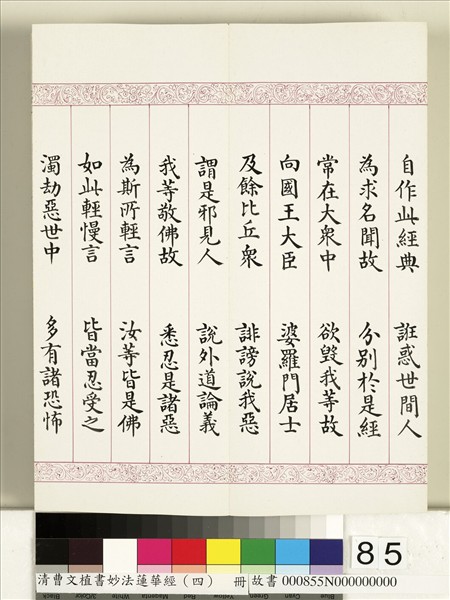 自作此經典　誑惑世間人
為求名聞故　分別於是經
常在大衆中　欲毀我等故
向國王大臣　婆羅門居士
及餘比丘衆　誹謗說我惡
謂是邪見人　說外道論義
我等敬佛故　悉忍是諸惡
為斯所輕言　汝等皆是佛
如此輕慢言　皆當忍受之
濁劫惡世中　多有諸恐怖
85
清曹文植書妙法蓮華經（四）　冊 故書 000855N000000000